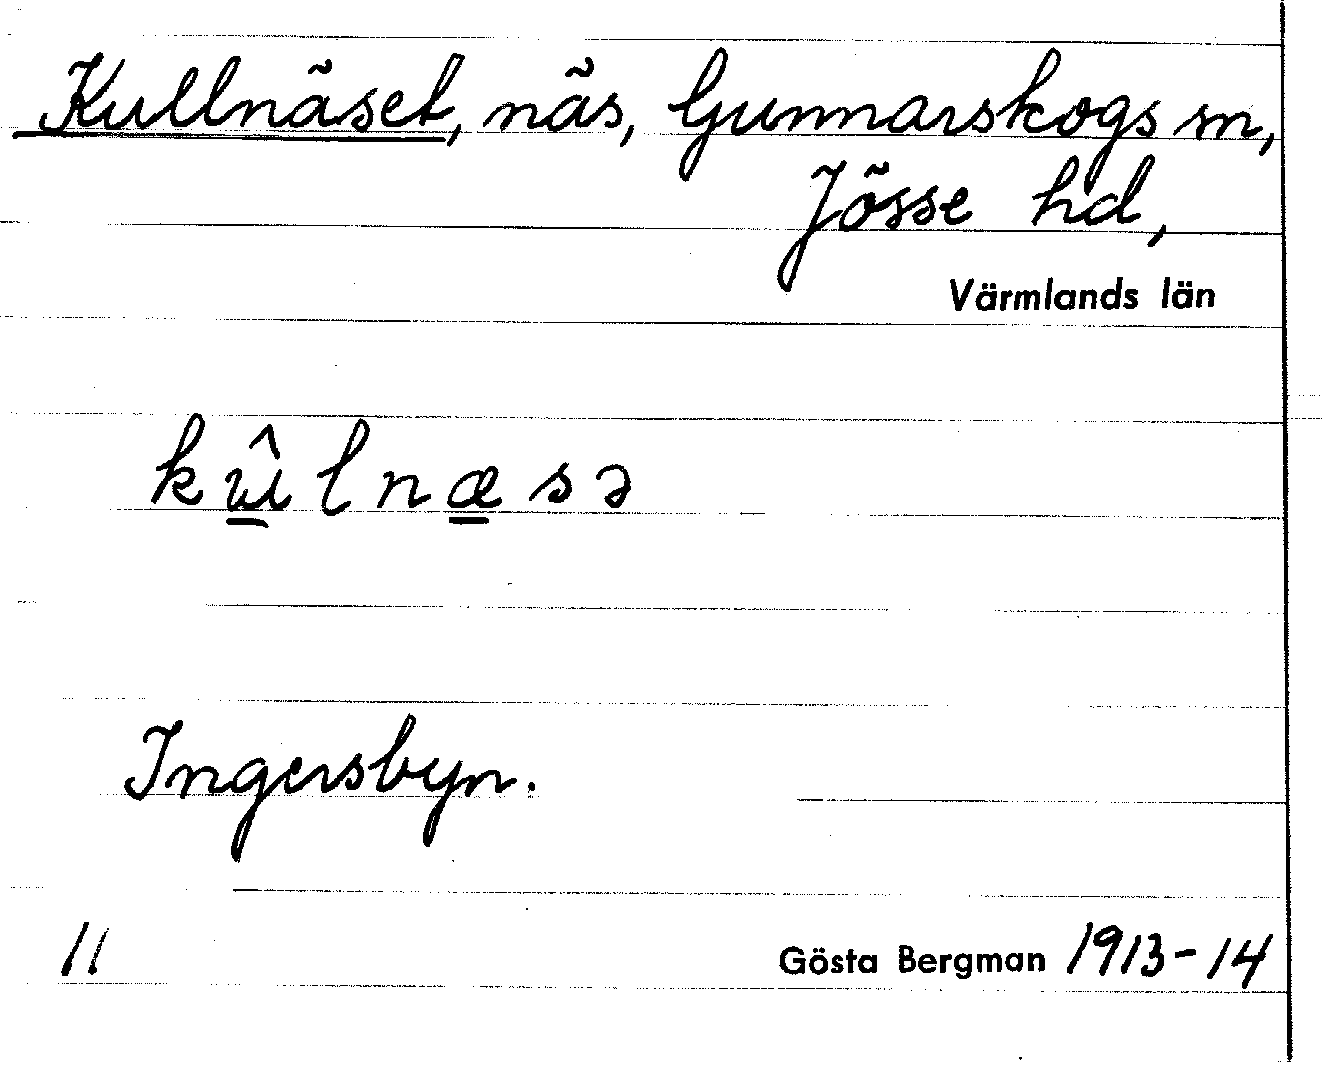 Kullnäset, näs, Gunnarskogs sn,
Jösse hd,
Värmlands län
kûlnæsə
Ingersbyn.
11
Gösta Bergman 1913-14